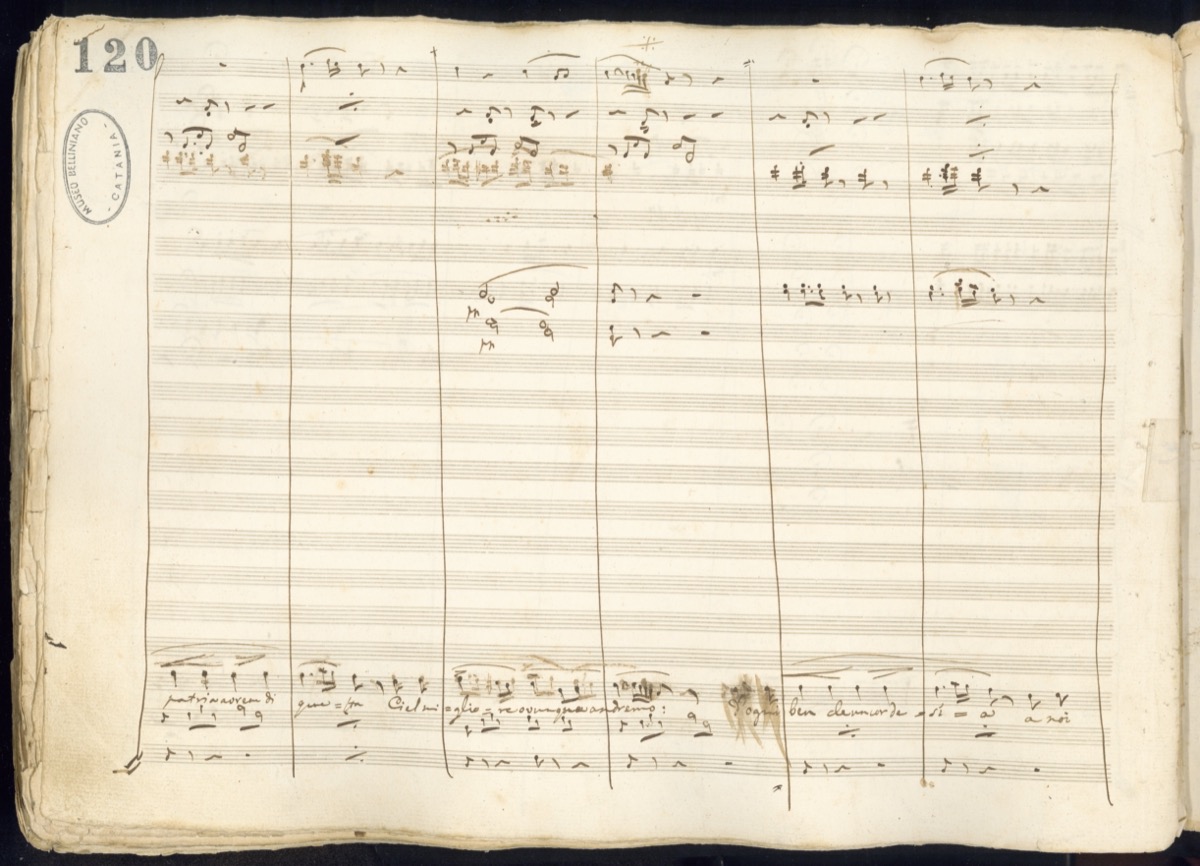 120
MUSEO BELLINIANO
- CATANIA -
patria avrem di que = sta Ciel mi = glio = re ovunque andremo: D'ogni ben de un cor de = si = a a noi